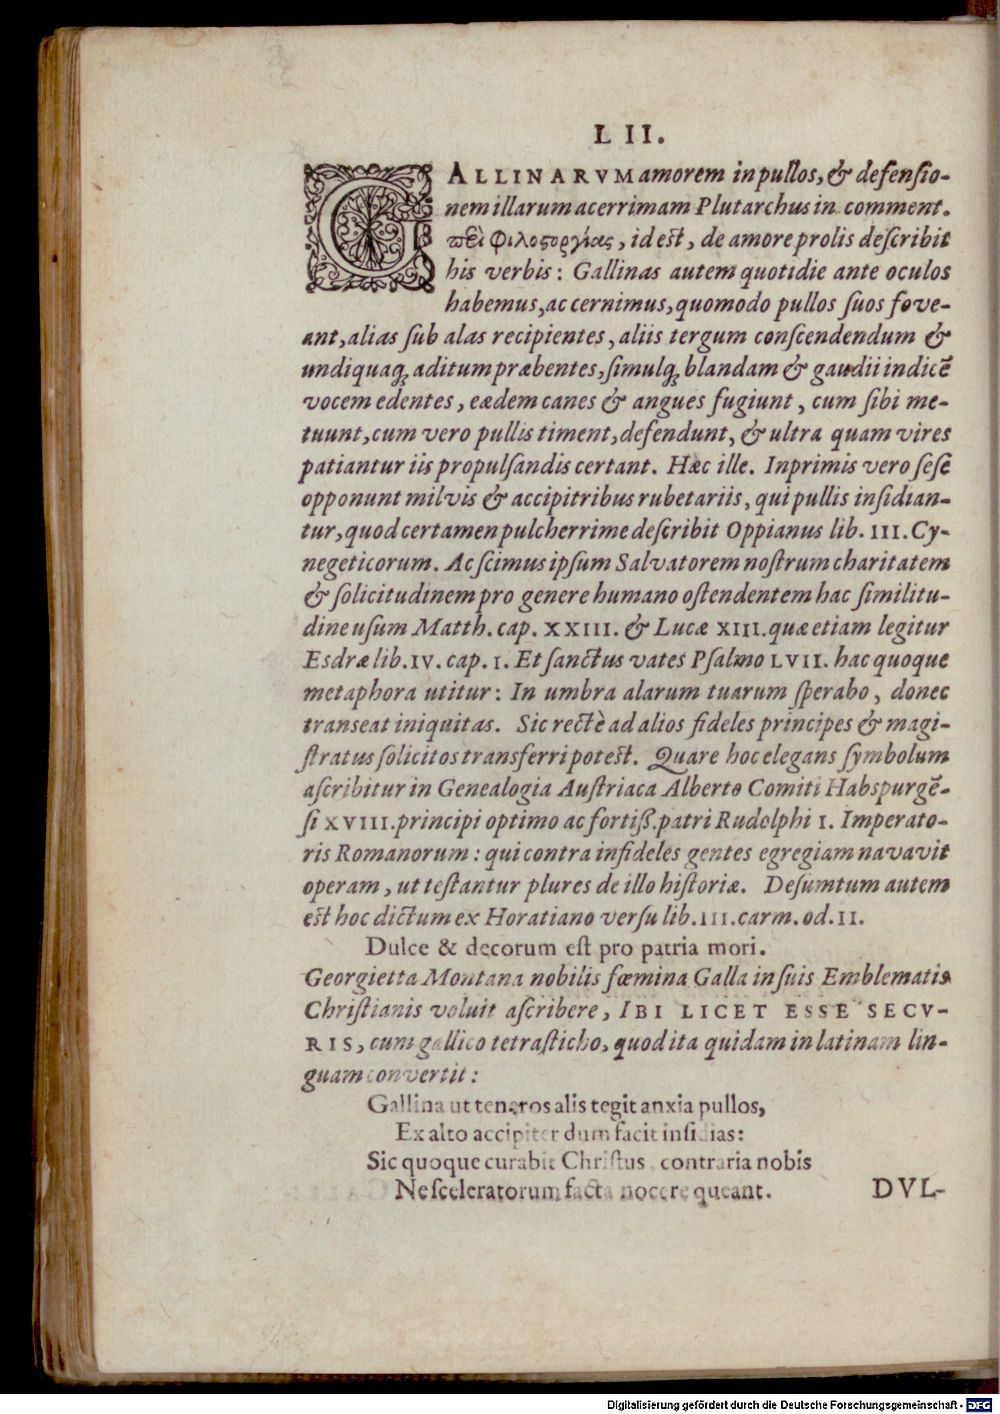 LII.
GALLINARVM amorem in pullos, & defensio-
nem illarum acerrimam Plutarchus in comment.
περὶ φιλοστοργίας, id est, de amore prolis describit
his verbis: Gallinas autem quotidie ante oculos
habemus, ac cernimus, quomodo pullos suos fove-
ant, alias sub alas recipientes, aliis tergum conscendendum &
undiquaq; aditum præbentes, simulq; blandam & gaudii indicē
vocem edentes, eædem canes & angues fugiunt, cum sibi me-
tuunt, cum vero pullis timent, defendunt, & ultra quam vires
patiantur iis propulsandis certant. Hæc ille. Inprimis vero sesē
opponunt milvis & accipitribus rubetariis, qui pullis insidian-
tur, quod certamen pulcherrime describit Oppianus lib. III. Cy-
negeticorum. Ac scimus ipsum Salvatorem nostrum charitatem
& solicitudinem pro genere humano ostendentem hac similitu-
dine usum Matth. cap. XXIII. & Lucæ XIII. quæ etiam legitur
Esdræ lib. IV. cap. I. Et sanctus vates Psalmo LVII. hac quoque
metaphora utitur: In umbra alarum tuarum sperabo, donec
transeat iniquitas. Sic rectè ad alios fideles principes & magi-
stratus solicitos transferri potest. Quare hoc elegans symbolum
ascribitur in Genealogia Austriaca Alberto Comiti Habspurgē-
si XVIII. principi optimo ac fortiß. patri Rudolphi I. Imperato-
ris Romanorum: qui contra infideles gentes egregiam navavit
operam, ut testantur plures de illo historiæ. Desumtum autem
est hoc dictum ex Horatiano versu lib. III. carm. od. II.
Dulce & decorum est pro patria mori.
Georgietta Montana nobilis fœmina Galla in suis Emblematis
Christianis voluit ascribere, IBI LICET ESSE SECV-
RIS, cum gallico tetrasticho, quod ita quidam in latinam lin-
guam convertit:
Gallina ut teneros alis tegit anxia pullos,
Ex alto accipiter dum facit insidias:
Sic quoque curabit Christus, contraria nobis
Ne sceleratorum facta nocere queant.
DVL-
Digitalisierung gefördert durch die Deutsche Forschungsgemeinschaft - DFG